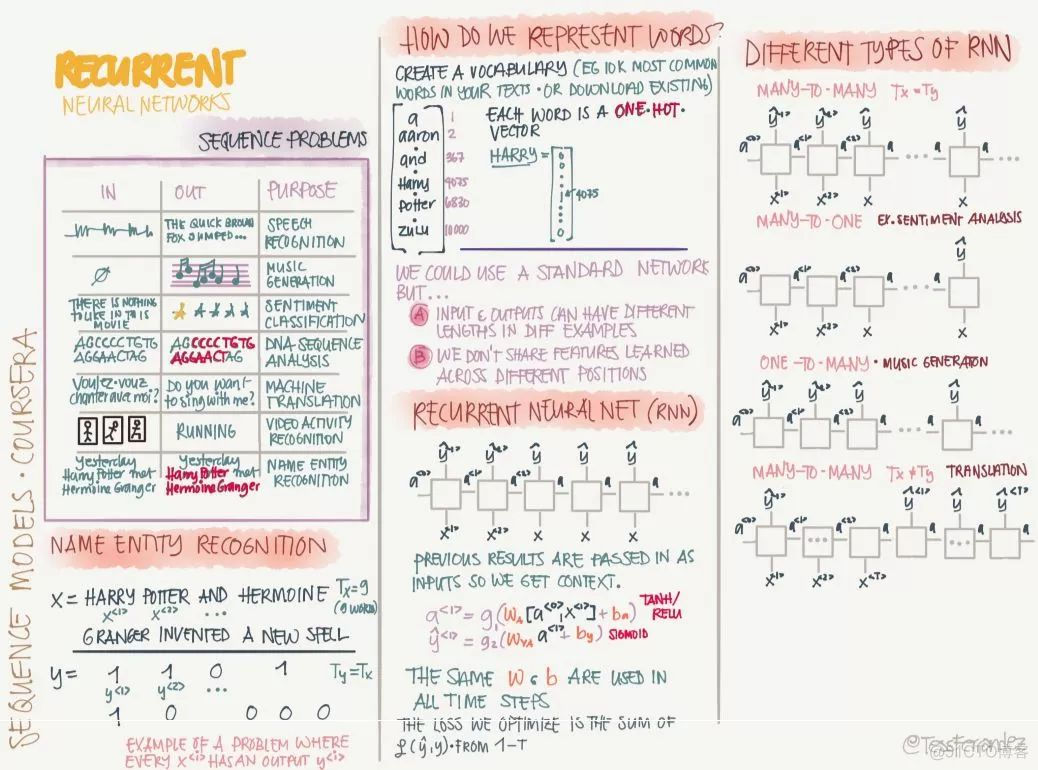 RECURRENT
NEURAL NETWORKS
SEQUENCE PROBLEMS
IN OUT PURPOSE
THE QUICK BROWN
FOX JUMPED...
SPEECH
RECOGNITION
∅
MUSIC
GENERATION
THERE IS NOTHING
TO LIKE IN THIS
MOVIE
SENTIMENT
CLASSIFICATION
AGCCCCTGTG
AGGAACTAG
AGCCCCTGTG
AGGAACTAG
DNA-SEQUENCE
ANALYSIS
Voulez-vouz
chanter avec moi?
Do you want
to sing with me?
MACHINE
TRANSLATION
RUNNING
VIDEO ACTIVITY
RECOGNITION
Yesterday
Harry Potter met
Hermoine Granger
Yesterday
Harry Potter met
Hermoine Granger
NAME ENTITY
RECOGNITION
SEQUENCE MODELS · COURSERA
NAME ENTITY RECOGNITION
X = HARRY POTTER AND HERMOINE Tx=9
x<1> x<2> ... (9 WORDS)
GRANGER INVENTED A NEW SPELL
y = 1 1 0 1 Ty=Tx
y<1> y<2> ...
1 0 0 0 0
EXAMPLE OF A PROBLEM WHERE
EVERY x<i> HAS AN OUTPUT y<i>
HOW DO WE REPRESENT WORDS?
CREATE A VOCABULARY (EG 10K MOST COMMON
WORDS IN YOUR TEXTS · OR DOWNLOAD EXISTING)
a 1
aaron 2
and 367
Harry 4075
Potter 6830
zulu 10000
EACH WORD IS A ONE·HOT·
VECTOR
HARRY =
0
0
4075
0
WE COULD USE A STANDARD NETWORK
BUT...
A INPUT & OUTPUTS CAN HAVE DIFFERENT
LENGTHS IN DIFF EXAMPLES
B WE DON'T SHARE FEATURES LEARNED
ACROSS DIFFERENT POSITIONS
RECURRENT NEURAL NET (RNN)
ŷ<1> ŷ ŷ ŷ ŷ
a<0> a<1> a a a a ...
x<1> x<2> x x x
PREVIOUS RESULTS ARE PASSED IN AS
INPUTS SO WE GET CONTEXT.
a<1> = g₁(Wa[a<0>,x<1>] + ba) TANH/
RELU
ŷ<1> = g₂(Wya a<1> + by) SIGMOID
THE SAME W & b ARE USED IN
ALL TIME STEPS
THE LOSS WE OPTIMIZE IS THE SUM OF
ℒ(ŷ,y) · FROM 1-T
DIFFERENT TYPES OF RNN
MANY-TO-MANY Tx = Ty
ŷ<1> ŷ<2> ŷ ŷ
a<0> a<1> a<2> a ... a ...
x<1> x x x
MANY-TO-ONE EX. SENTIMENT ANALYSIS
ŷ
a<0> a<1> a<2> a ... a
x<1> x<2> x x
ONE-TO-MANY · MUSIC GENERATION
ŷ<1> ŷ<2> ŷ ŷ
a<0> a<1> a<2> a ... a ...
x
MANY-TO-MANY Tx ≠ Ty TRANSLATION
ŷ<1> ŷ ŷ<T>
a<0> a<1> ... a<2> a a ... a
x<1> x<2> x<T>
@TessFerrandez
@51CTO博客